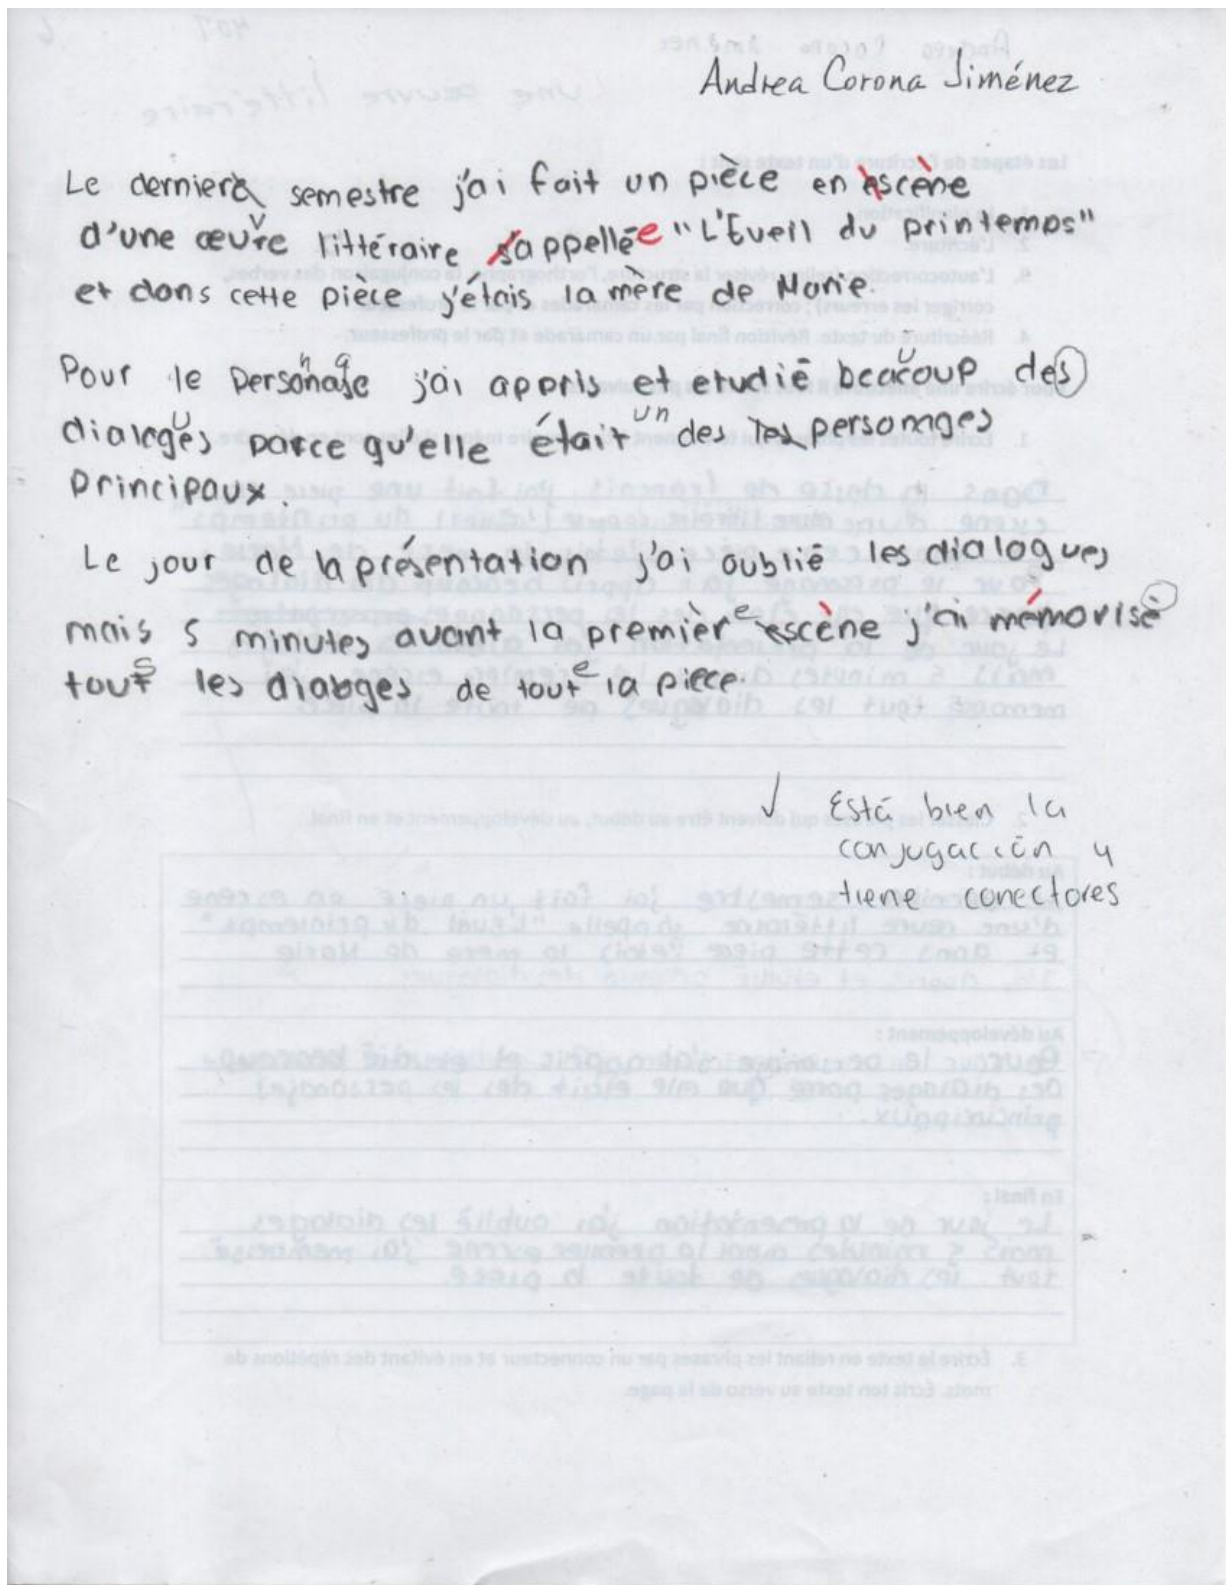 Andrea Corona Jiménez
Le dernierè semestre j'ai fait un pièce en escène
d'une œuvre littéraire s'appelléе "L'Eveil du printemps"
et dans cette pièce j'étais la mère de Marie.
Pour le personnage j'ai appris et etudié beaucoup des
dialogues parce qu'elle était un des les personages
principaux.
Le jour de la présentation j'ai oublié les dialogues
mais 5 minutes avant la première escène j'ai mémorisé
tous les dialoges de toute la pièce.
✓ Está bien la
conjugación y
tiene conectores